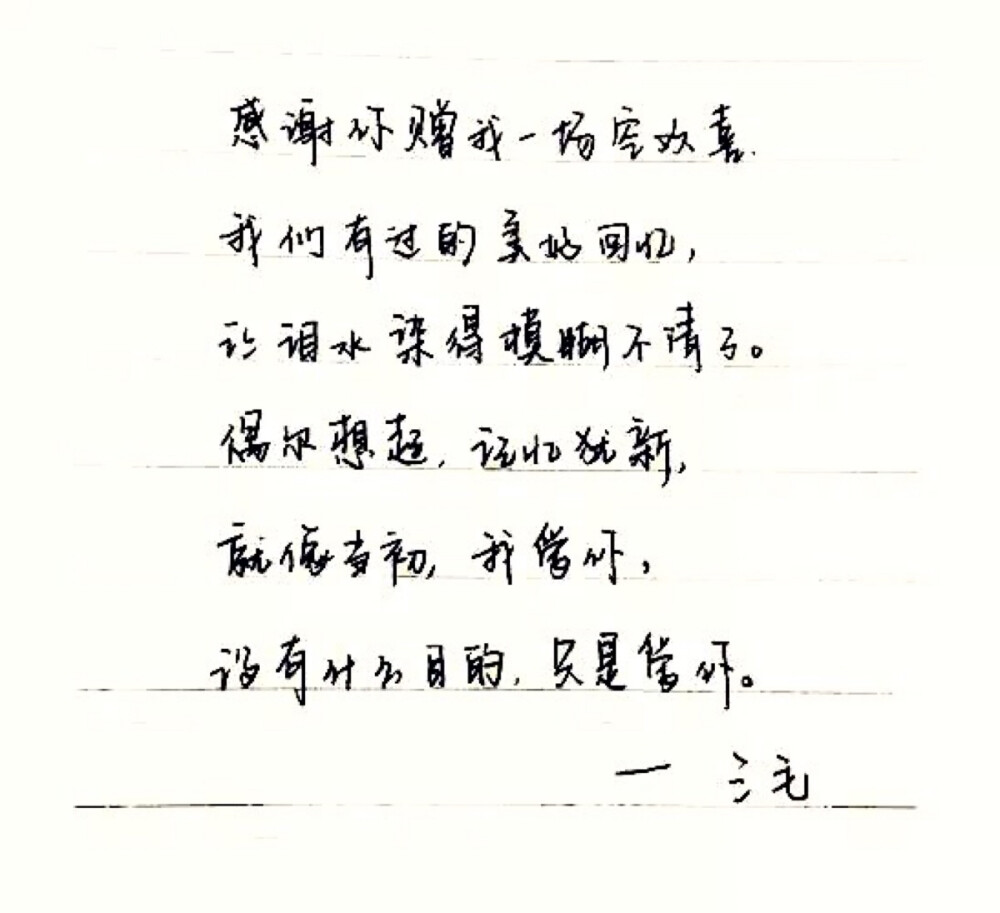 感谢你赠我一场空欢喜.
我们有过的美好回忆,
让泪水染得模糊不清了。
偶尔想起, 记忆犹新,
就像当初, 我爱你,
没有什么目的, 只是爱你。
— 三毛